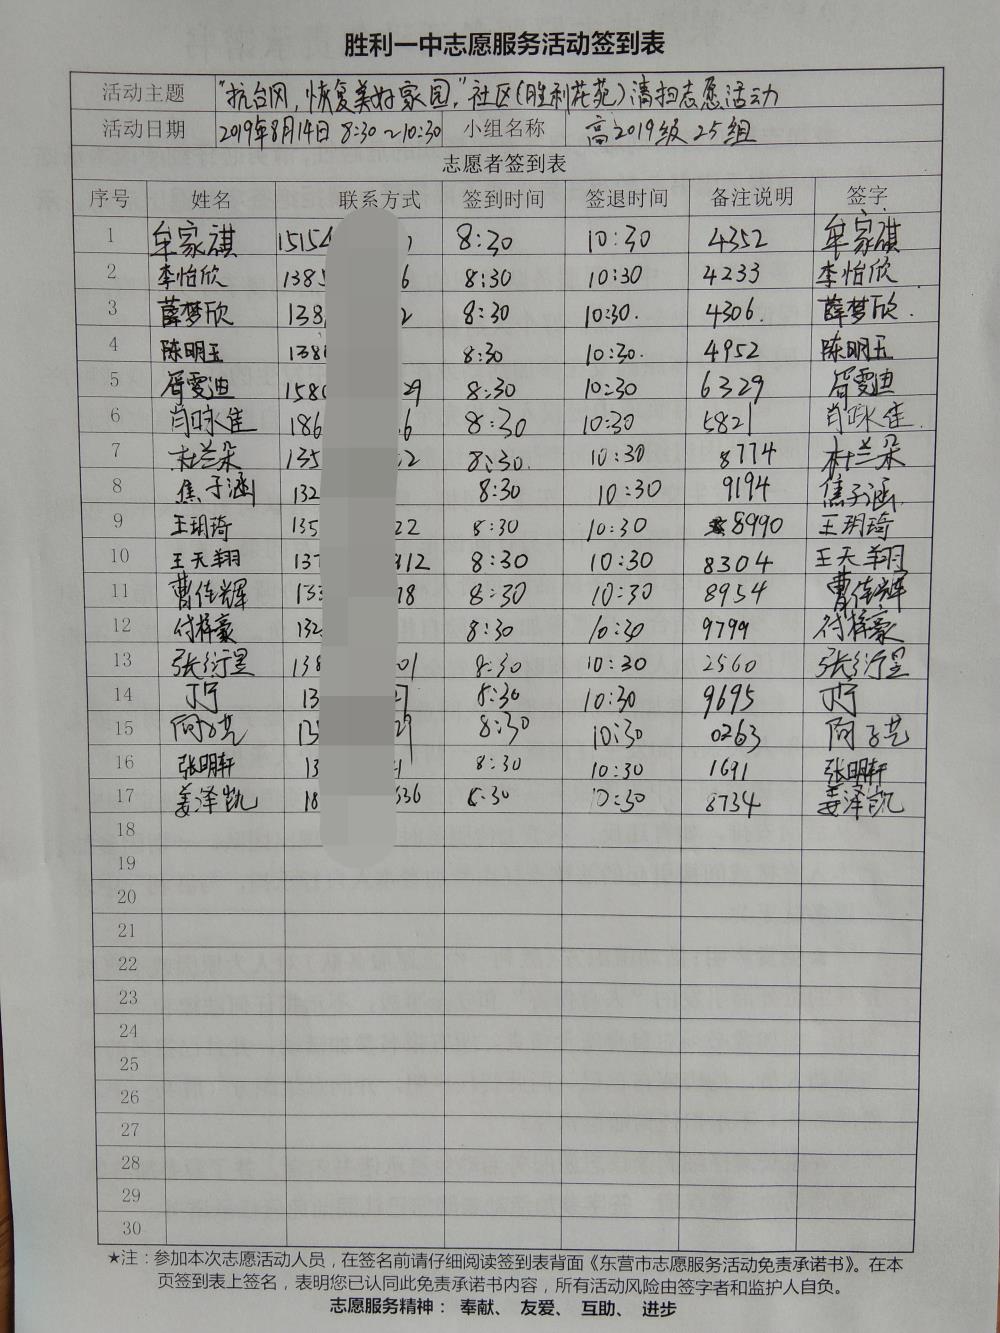 胜利一中志愿服务活动签到表
活动主题 "抗台风,恢复美好家园,"社区(胜利花苑)清扫志愿活动
活动日期 2019年8月14日 8:30~10:30 小组名称 高2019级 25组
志愿者签到表
序号 姓名 联系方式 签到时间 签退时间 备注说明 签字
1 牟家祺 15154 8:30 10:30 4352 牟家祺
2 李怡欣 1385 6 8:30 10:30 4233 李怡欣
3 薛梦欣 138 2 8:30 10:30. 4306. 薛梦欣.
4 陈明玉 138 8:30 10:30. 4952 陈明玉
5 胥雯迪 1580 29 8:30 10:30 6329 胥雯迪
6 肖咏佳 186 6 8:30 10:30 5821 肖咏佳.
7 杜兰朵 135 2 8:30. 10:30 8774 杜兰朵
8 焦子涵 132 8:30 10:30 9194 焦子涵
9 王玥琦 135 22 8:30 10:30 8990 王玥琦
10 王天翔 137 12 8:30 10:30 8304 王天翔
11 曹佳辉 133 8:30 10:30 8954 曹佳辉
12 付梓豪 132 8:30 10:30 9799 付梓豪
13 张衍昱 138 01 8:30 10:30 2560 张衍昱
14 丁宁 13 8:30 10:30 9695 丁宁
15 13 29 8:30 10:30 0263
16 张明轩 13 1 8:30 10:30 1691 张明轩
17 姜泽凯 18 636 8:30 10:30 8734 姜泽凯
18
19
20
21
22
23
24
25
26
27
28
29
30
★注：参加本次志愿活动人员，在签名前请仔细阅读签到表背面《东营市志愿服务活动免责承诺书》。在本
页签到表上签名，表明您已认同此免责承诺书内容，所有活动风险由签字者和监护人自负。
志愿服务精神： 奉献、 友爱、 互助、 进步